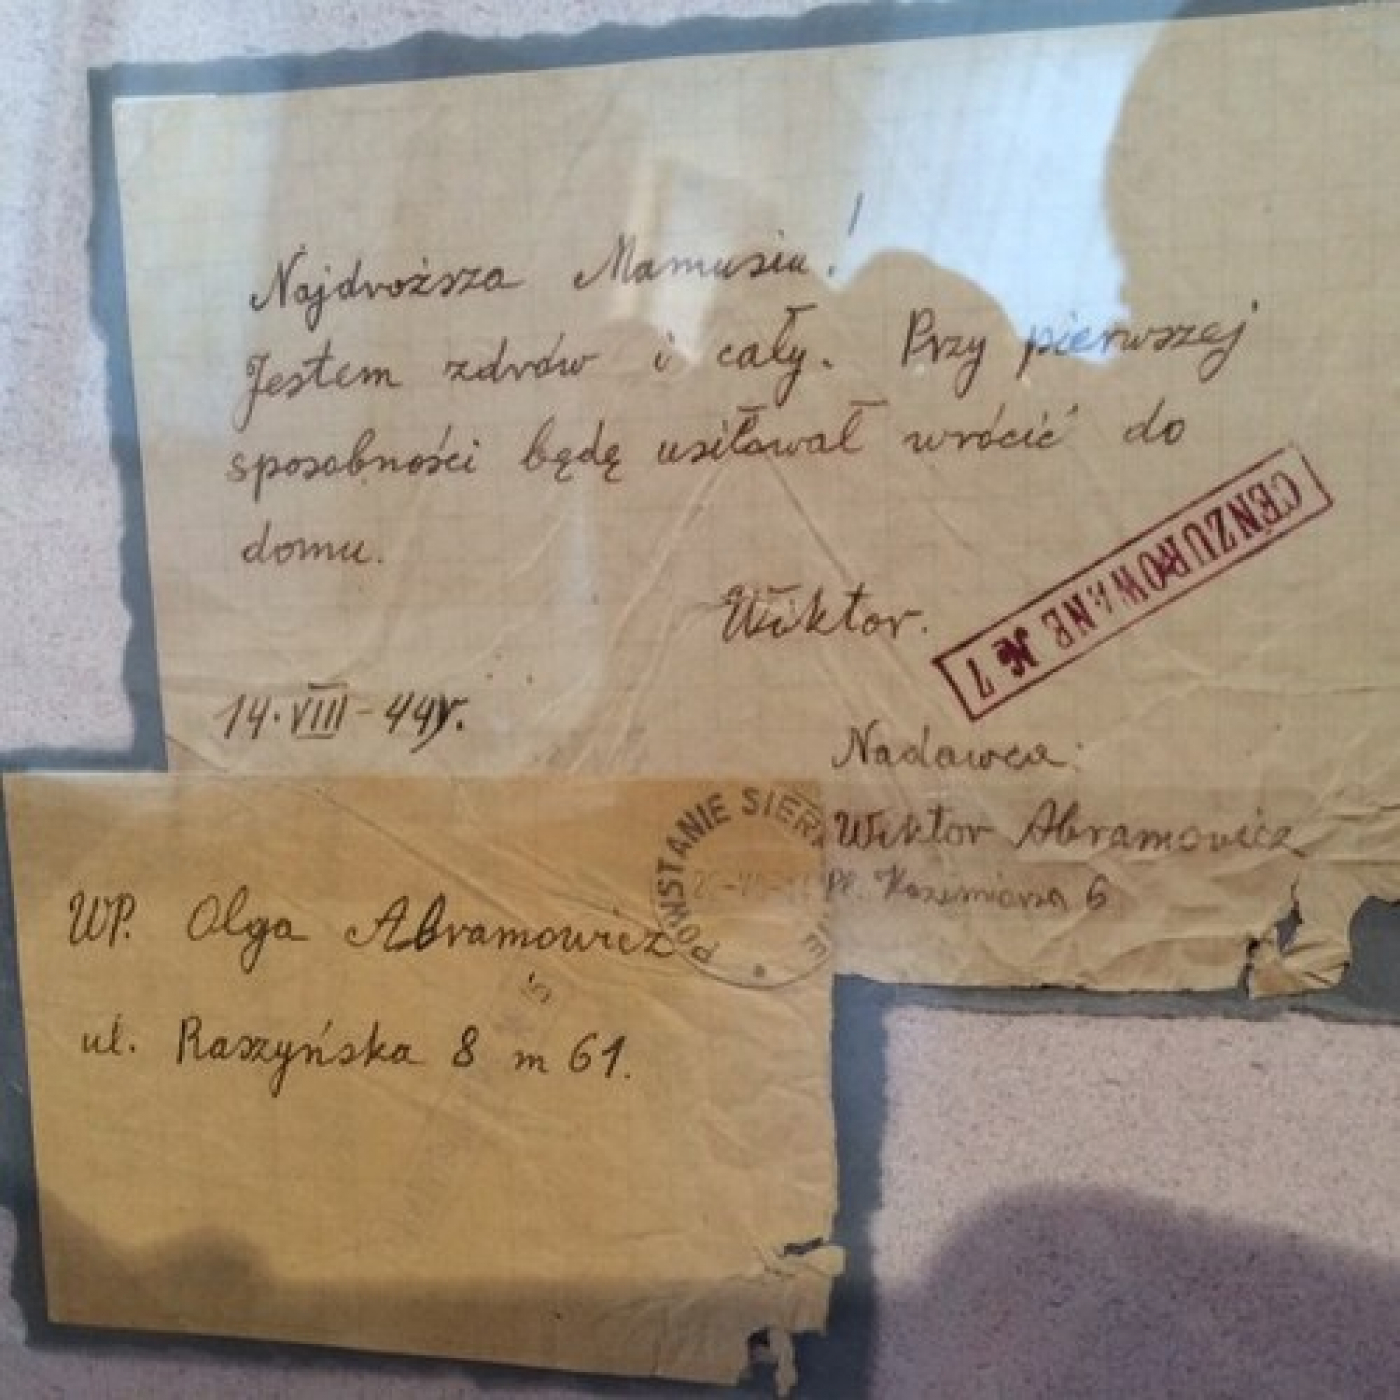 Najdroższa Mamusiu!
Jestem zdrów i cały. Przy pierwszej
sposobności będę usiłował wrócić do
domu.
Wiktor.
CENZUROWANE № 7
14.VIII-44r.
Nadawca:
Wiktor Abramowicz
Pl. Kazimierza 6
POWSTANIE SIERP
WP. Olga Abramowicz
ul. Raszyńska 8 m 61.